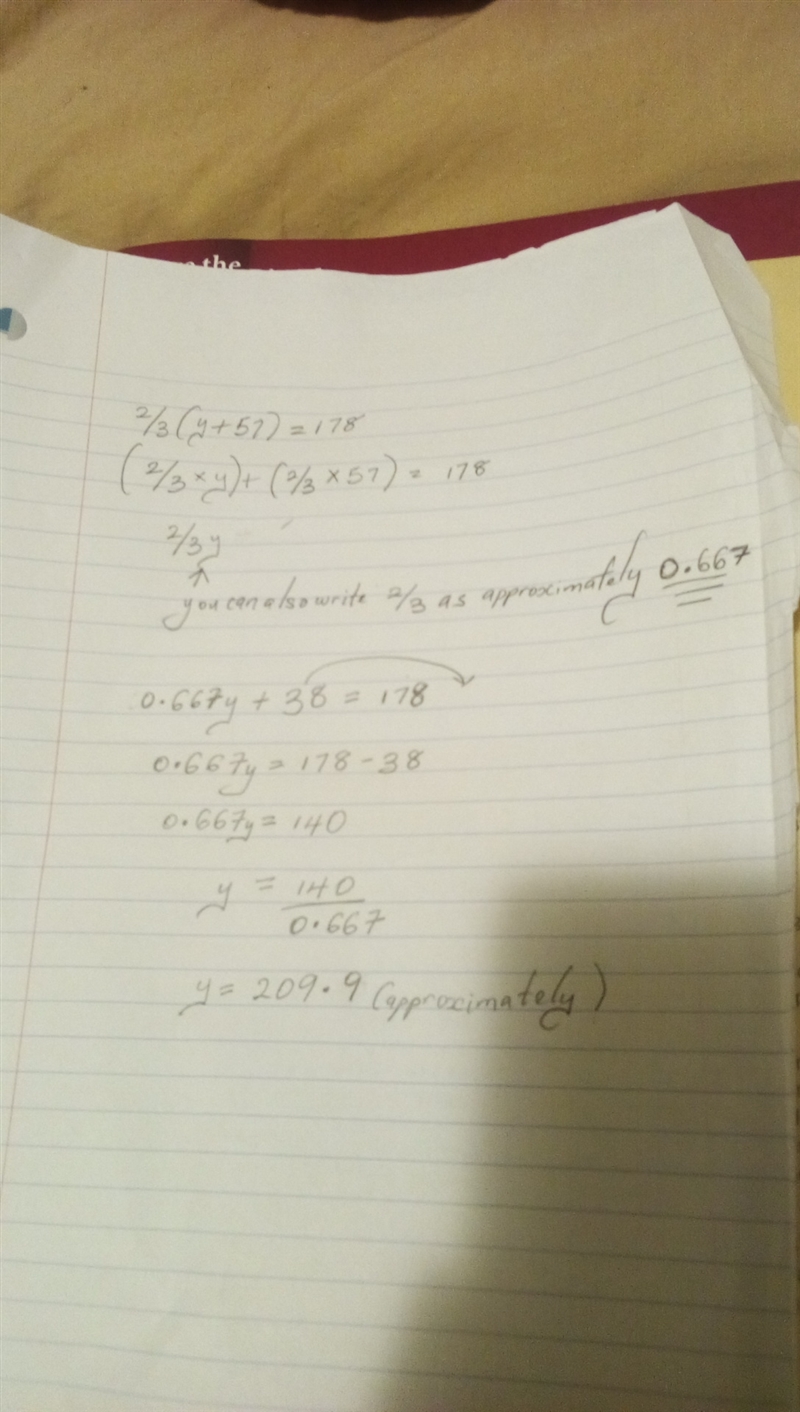 the
2/3(y+57)=178
(2/3×y)+(2/3×57)= 178
2/3y
you can also write 2/3 as approximately 0.667
0.667y + 38 = 178
0.667y = 178-38
0.667y = 140
y = 140
0.667
y = 209.9 (approximately)